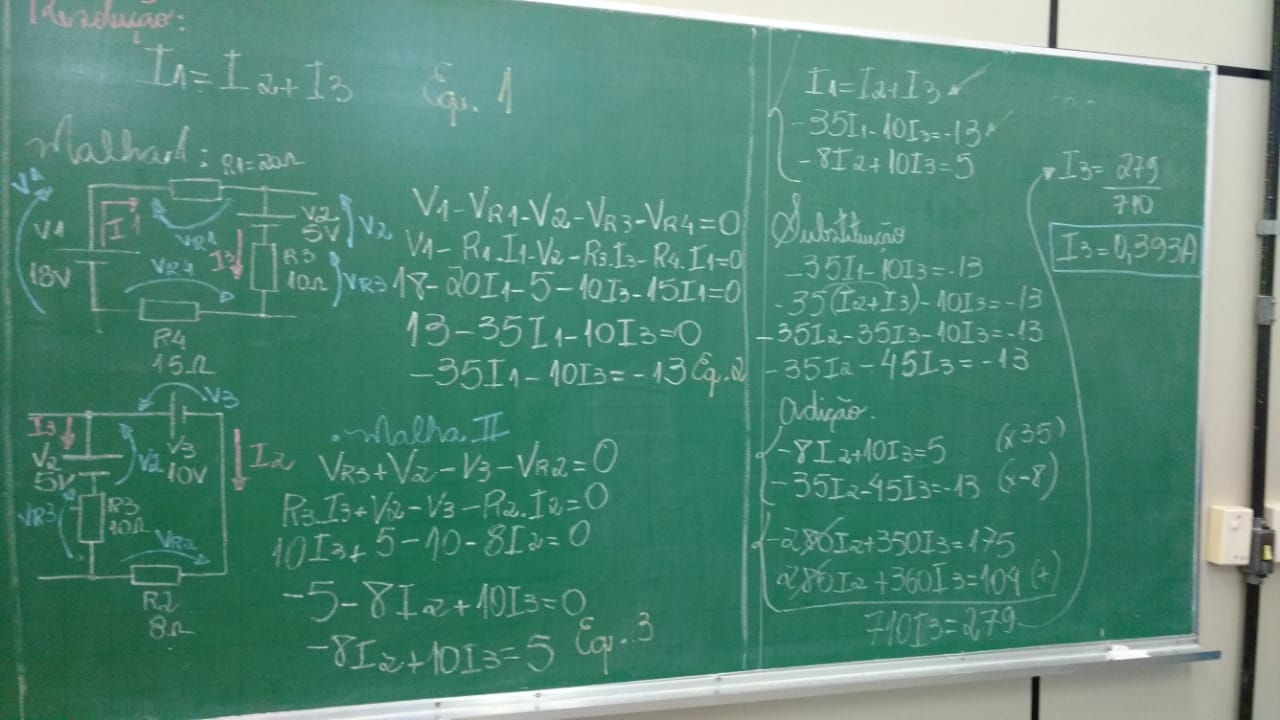 Resolução:
I1=I2+I3 Eq. 1
Malha 1: R1=20Ω
V1
V1
18V
I1
VR1
V2
5V
V2
I3
R3
10Ω
VR3
VR4
R4
15Ω
V1-VR1-V2-VR3-VR4=0
V1-R1.I1-V2-R3.I3-R4.I1=0
18-20I1-5-10I3-15I1=0
13-35I1-10I3=0
-35I1-10I3=-13 Eq.2
V3
I3
V2
5V
V2
V3
10V
I2
VR3
R3
10Ω
VR2
R2
8Ω
. Malha II
VR3+V2-V3-VR2=0
R3.I3+V2-V3-R2.I2=0
10I3+5-10-8I2=0
-5-8I2+10I3=0
-8I2+10I3=5 Eq..3
I1=I2+I3
-35I1-10I3=-13
-8I2+10I3=5
Substituição
-35I1-10I3=-13
-35(I2+I3)-10I3=-13
-35I2-35I3-10I3=-13
-35I2-45I3=-13
Adição.
-8I2+10I3=5 (x35)
-35I2-45I3=-13 (x-8)
-280I2+350I3=175
280I2+360I3=104 (+)
710I3=279
I3=279
710
I3=0,393A